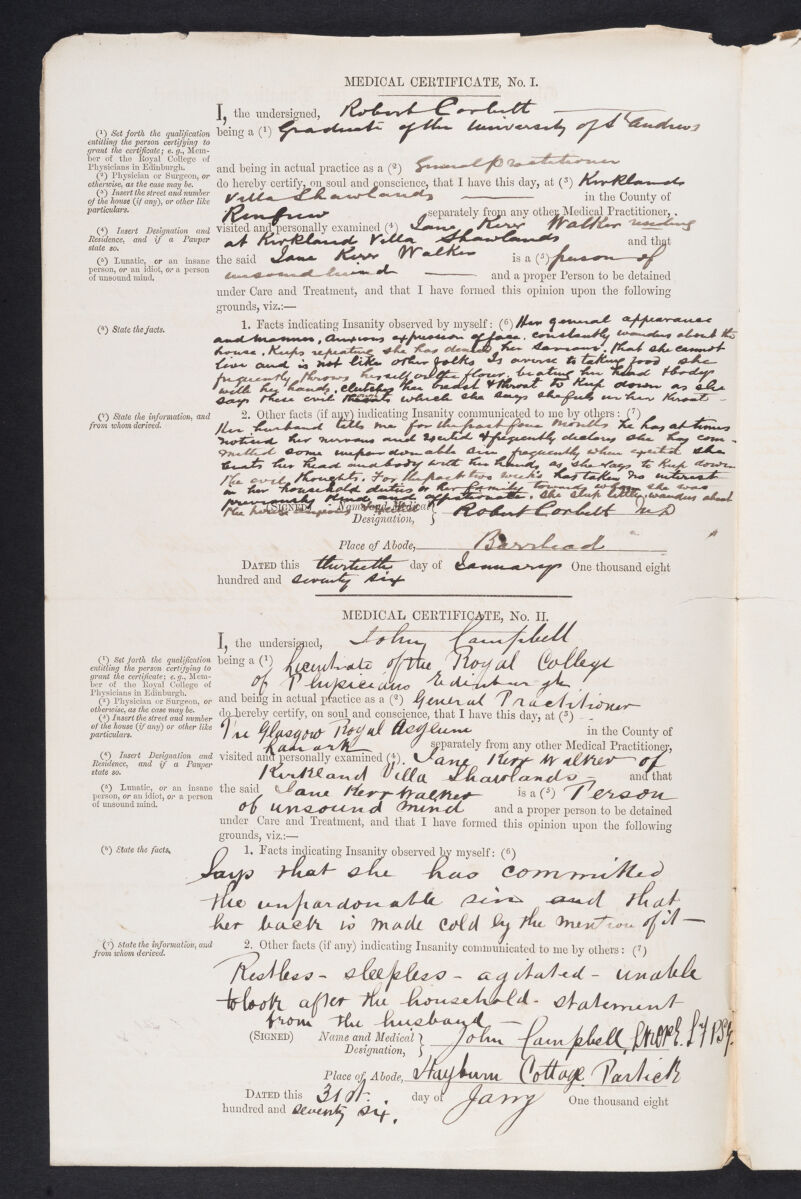 MEDICAL CERTIFICATE, No. I.
I, the undersigned, Robert Corbett
(1) Set forth the qualification entitling the person certifying to grant the certificate; e. g., Member of the Royal College of Physicians in Edinburgh.
being a (1) Graduate of the University of St Andrews
(2) Physician or Surgeon, or otherwise, as the case may be.
and being in actual practice as a (2) General Practitioner
(3) Insert the street and number of the house (if any), or other like particulars.
do hereby certify, on soul and conscience, that I have this day, at (3) Kirklands
Villa Shawlands in the County of
Renfrew separately from any other Medical Practitioner,
(4) Insert Designation and Residence, and if a Pauper state so.
visited and personally examined (4) Jane Kerr Walker residing
at Kirkland Villa Shawlands and that
(5) Lunatic, or an insane person, or an idiot, or a person of unsound mind.
the said Jane Kerr Walker is a (5) person of
unsound mind and a proper Person to be detained
under Care and Treatment, and that I have formed this opinion upon the following
grounds, viz.:—
(6) State the facts.
1. Facts indicating Insanity observed by myself: (6) Her general appearance
and manner, anxious expression of face, constantly wanders about the
house. Keeps repeating she has denied her Saviour, that she cannot
live and is not like other folks Is averse to taking food she
frequently throws herself on the floor, beating her head & body
with her hands, clutches her breast & throat to keep down as she
says these evil which she says she feels in her throat -
(7) State the information, and from whom derived.
2. Other facts (if any) indicating Insanity communicated to me by others: (7)
Her husband tells me for the past four months he has at times
noticed her nervous and excited & frequently declares she has com-
mitted some unpardonable sin, frequently when excited she
beats her head and body with her hands, as she says to keep down
the evil thoughts. For the past two weeks has taken no interest
in her household duties or her family towards whom she was
previously kind and affectionate. She sleeps little, wanders about
the house
(SIGNED) Name and Medical Designation, Robert Corbett MD
Place of Abode, Barrhead
DATED this thirtieth day of January One thousand eight
hundred and seventy six
MEDICAL CERTIFICATE, No. II.
I, the undersigned, John Campbell
(1) Set forth the qualification entitling the person certifying to grant the certificate; e. g., Member of the Royal College of Physicians in Edinburgh.
being a (1) Licentiate of the Royal College
of Physicians Edinburgh
(2) Physician or Surgeon, or otherwise, as the case may be.
and being in actual practice as a (2) General Practitioner
(3) Insert the street and number of the house (if any) or other like particulars.
do hereby certify, on soul and conscience, that I have this day, at (3)
The Glasgow Royal Asylum in the County of
Lanark separately from any other Medical Practitioner,
(4) Insert Designation and Residence, and if a Pauper state so.
visited and personally examined (4) Jane Kerr Walker of
Kirkland Villa Shawlands and that
(5) Lunatic, or an insane person, or an idiot, or a person of unsound mind.
the said Jane Kerr Walker is a (5) Person
of unsound mind and a proper person to be detained
under Care and Treatment, and that I have formed this opinion upon the following
grounds, viz.:—
(6) State the facts.
1. Facts indicating Insanity observed by myself: (6)
Says that she has committed
the unpardonable sin and that
her back is made cold by the mention of it —
(7) State the information, and from whom derived.
2. Other facts (if any) indicating Insanity communicated to me by others: (7)
Restless - sleepless - agitated - unable
to look after the household - statement
from the husband
(SIGNED) Name and Medical Designation, John Campbell,
Place of Abode, Hayburn Cottage Partick
DATED this 31st. day of Jany One thousand eight
hundred and seventy six.